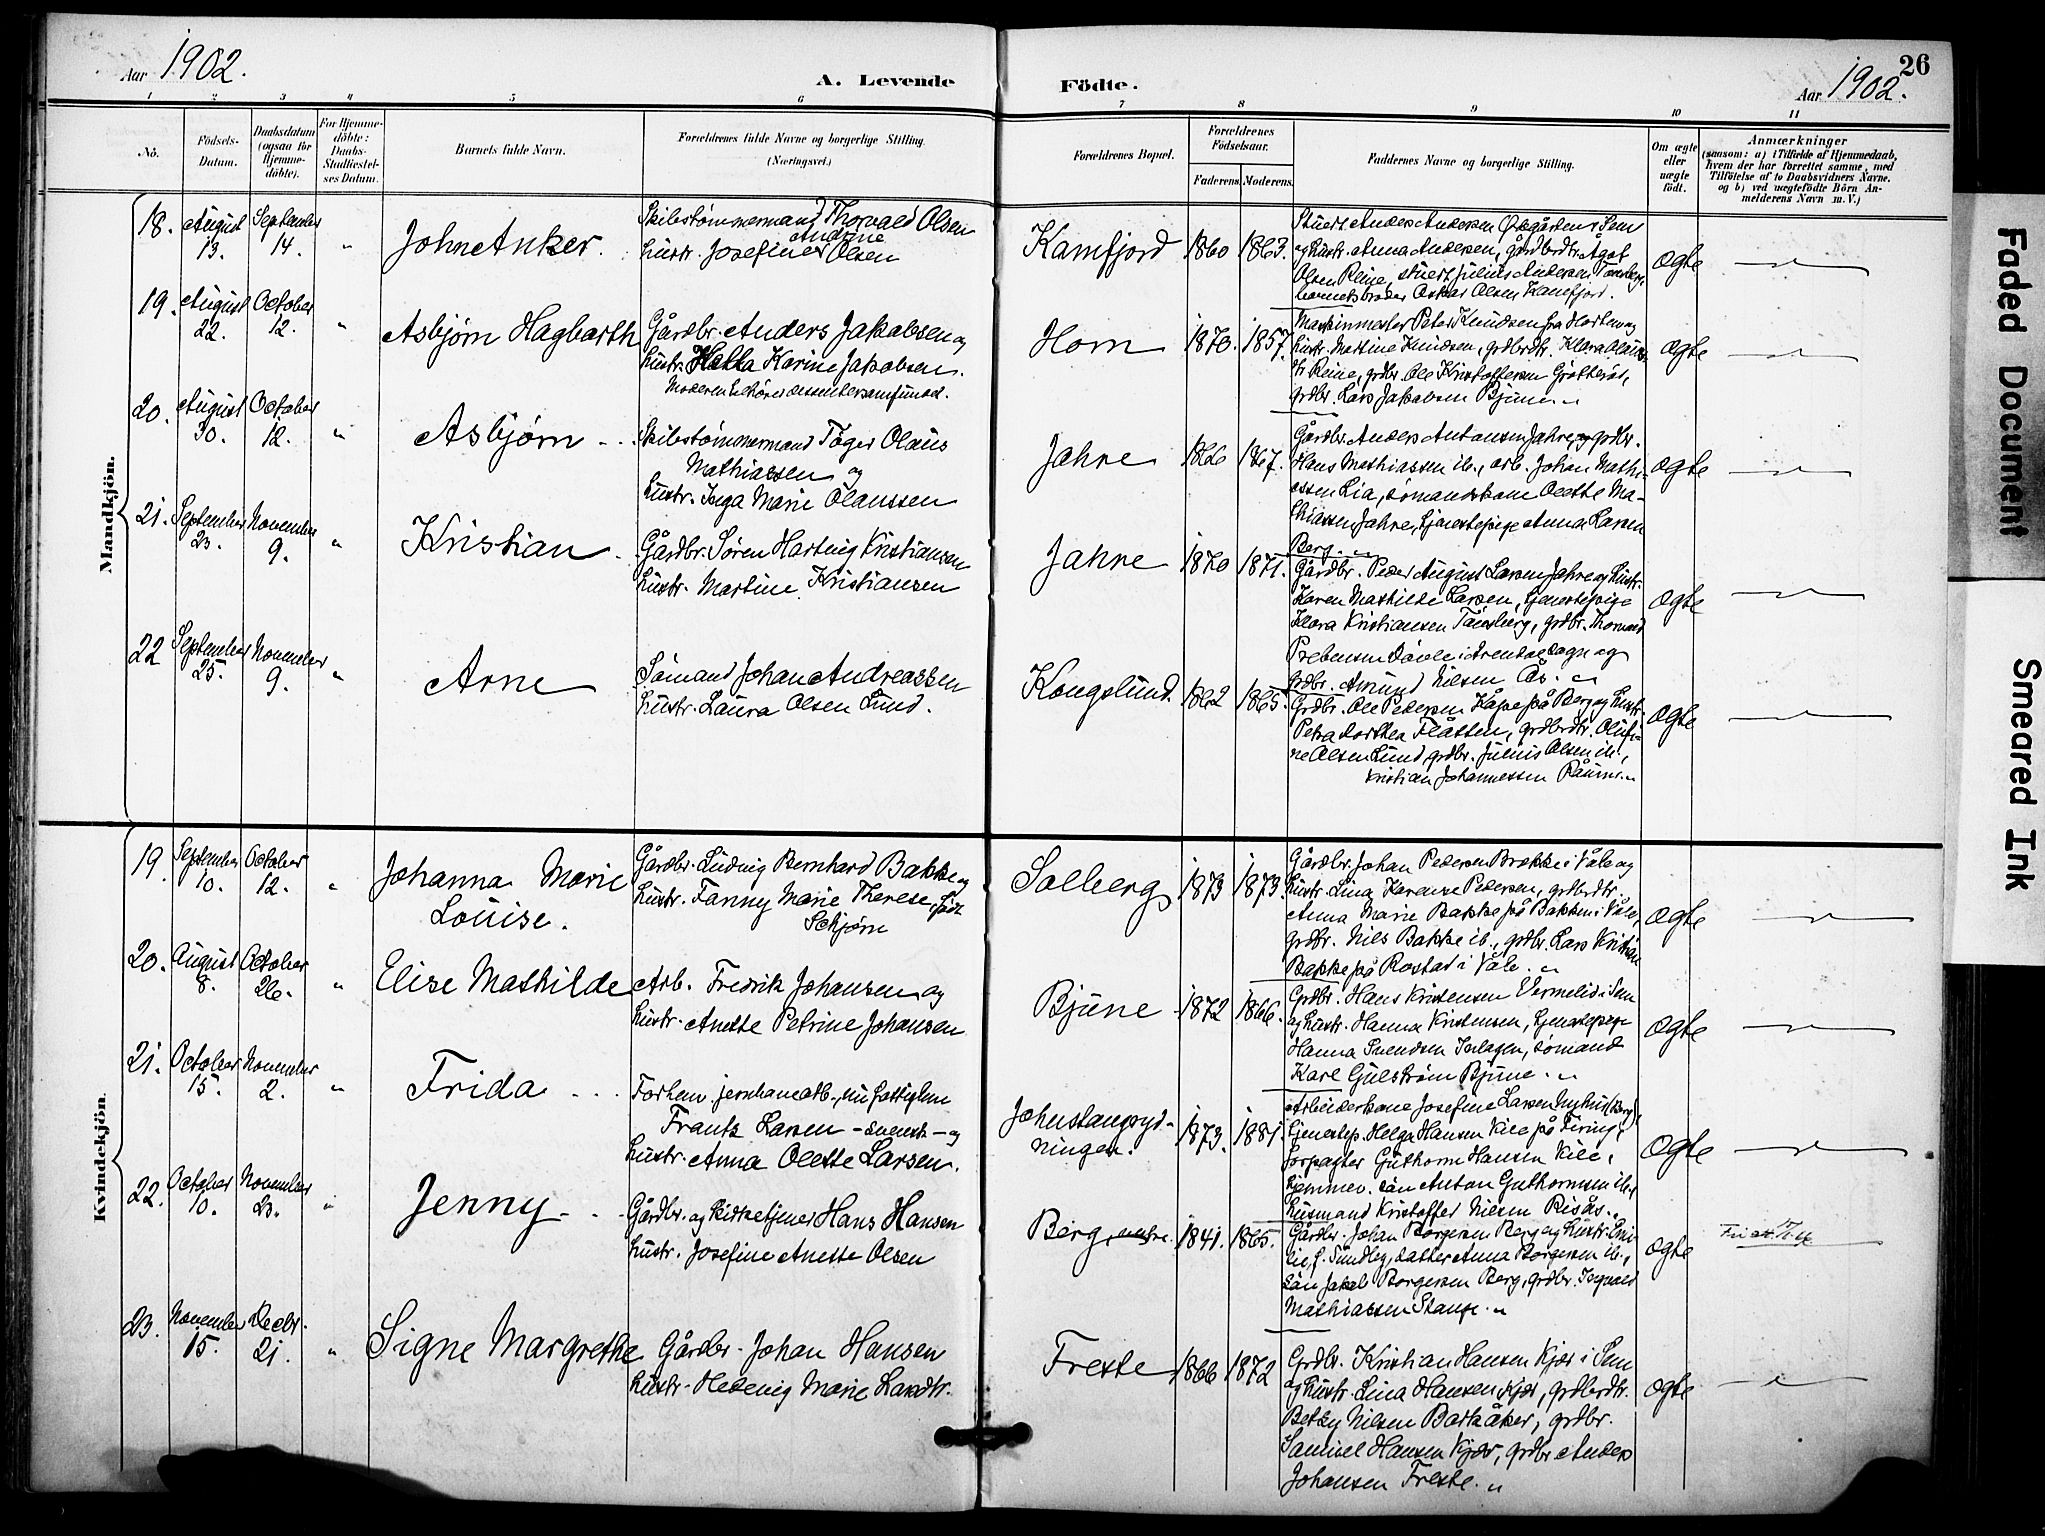 Aar 1902.
A. Levende
Födte.
Aar 1902.
26
1 2 3 4 5 6 7 8 9 10 11
No.
Födsels-Datum.
Daabsdatum (ogsaa for Hjemme-döbte).
For Hjemme-döbte: Daabs-Stadfæstel-ses Datum.
Barnets fulde Navn.
Forældrenes fulde Navne og borgerlige Stilling. (Næringsvei.)
Forældrenes Bopæl.
Forældrenes Födselsaar.
Faderens. Moderens.
Faddernes Navne og borgerlige Stilling.
Om ægte eller uægte födt.
Anmærkninger
(saasom: a) i Tilfælde af Hjemmedaab, hvem der har forrettet samme, med Tilföielse af to Daabsvidners Navne. og b) ved uægtefödte Börn An-melderens Navn m. V.)
Mandkjön.
18. August 13. September 14. "
John Anker.
Skibstømmermand Thorvald Olsen
hustr. Josefine Andrine Olsen
Kamfjord 1860 1863.
Stuert Anders Andersen Ørsgården i Sem
og hustr. Anna Andersen, gårdbrdtr. Ågot
Olsen Reine, stuert Julius Andersen Tønsberg,
barnets broder Oskar Olsen Kamfjord.
Ægte
19. August 22. October 12. "
Asbjørn Hagbarth
Gårdbr. Anders Jakobsen og
hustr. Hella Karine Jakobsen.
Moderen tilhører dissentersamfund.
Hom 1870. 1857.
Maskinmester Peter Knudsen fra Horten og
hustr. Martine Knudsen, grdbrdtr. Klara Olaus-
dtr Reine, grdbr. Ole Kristoffersen Grøtterås,
grdbr. Lars Jakobsen Bjune.
Ægte
20. August 30. October 12. "
Asbjørn
Skibstømmermand Tøger Olaus
Mathiassen og
hustr. Inga Marie Olaussen
Jahre 1866 1867.
Gårdbr. Anders Antonsen Jahre, og grdbr.
Hans Mathiassen ib., arb. Johan Mathi-
essen Lia, sømandskone Olette Ma-
thiassen Jahre, tjenestepige Anna Larsen
Berg.
Ægte
21. September 23. November 9. "
Kristian
Gårdbr. Søren Hartvig Kristiansen
hustr. Martine Kristiansen
Jahre 1870 1871.
Gårdbr. Peder August Larsen Jahre og hustr.
Karen Mathilde Larsen, tjenestepige
Klara Kristiansen Tønsberg, grdbr. Thorvald
Prebensen Døvle i Arendal sogn og
grdbr. Amund Nilsen Ås.
Ægte
22 September 25. November 9. "
Arne
Sømand Johan Andreassen
hustr. Laura Olsen Lund.
Kongslund. 1862 1865.
Grdbr. Ole Pedersen Kåpe på Berg og hustr.
Petra Dorthea Flåtten, grdbrdtr. Olufi-
ne Olsen Lund grdbr. Julius Olsen ib.,
Kristian Johannessen Råum.
Ægte
Kvindekjön.
19. September 10. October 12. "
Johanna Marie
Louise.
Gårdbr. Ludvig Bernhard Bakke og
hustr. Fanny Marie Therese, født
Schjørn
Solberg 1873 1873.
Gårdbr. Johan Pedersen Brække i Våle og
hustr. Lina Karense Pedersen, grdbrdtr.
Anna Marie Bakke på Bakken i Våle,
grdbr. Nils Bakke ib., grdbr. Lars Kristian
Bakke på Rostad i Våle.
Ægte
20. August 8. October 26. "
Elise Mathilde
Arb. Fredrik Johansen og
hustr. Anette Petrine Johansen
Bjune 1872 1866.
Grdbr. Hans Kristensen Vermelid i Sem
og hustr. Hanna Kristensen, tjenestepige
Hanna Svendsen Inlagen, sømand
Karl Gulstrøm Bjune.
Ægte
21. October 15. November 2. "
Frida
Forhen. jernbanearb., nu fattiglem
Frantz Larsen – svensk – og
hustr. Anna Olette Larsen.
Johnstangryd-
ningen. 1873. 1881.
Arbeiderkone Josefine Larsen Nyhus (Berg),
tjenestep. Helga Hansen Kile på Firing,
forpagter Guthorm Hansen Kile,
hjemmev. søn Anton Guthormsen ib.,
husmand Kristoffer Nilsen Risås.
Ægte
22. October 10. November 23. "
Jenny
Gårdbr. og kirketjener Hans Hansen
hustr. Josefine Anette Olsen
Berg, 1841. 1865.
Gårdbr. Johan Borgersen Berg og hustr. Emi-
lie f. Sundby, datter Anna Borgersen ib.,
søn Jakob Borgersen Berg, grdbr. Ingvald
Mathiassen Stange.
Ægte
23. November 15. Decbr. 21. "
Signe Margrethe
Gårdbr. Johan Hansen
hustr. Hedevig Marie Larsdtr.
Freste 1866 1872
Grdbr. Kristian Hansen Kjær i Sem
og hustr. Lina Hansen Kjær, grdbrdtr.
Betzy Nilsen Barkåker, grdbr.
Samuel Hansen Kjær, grdbr Anders
Johansen Freste.
Ægte
Faded Document
Smeared Ink